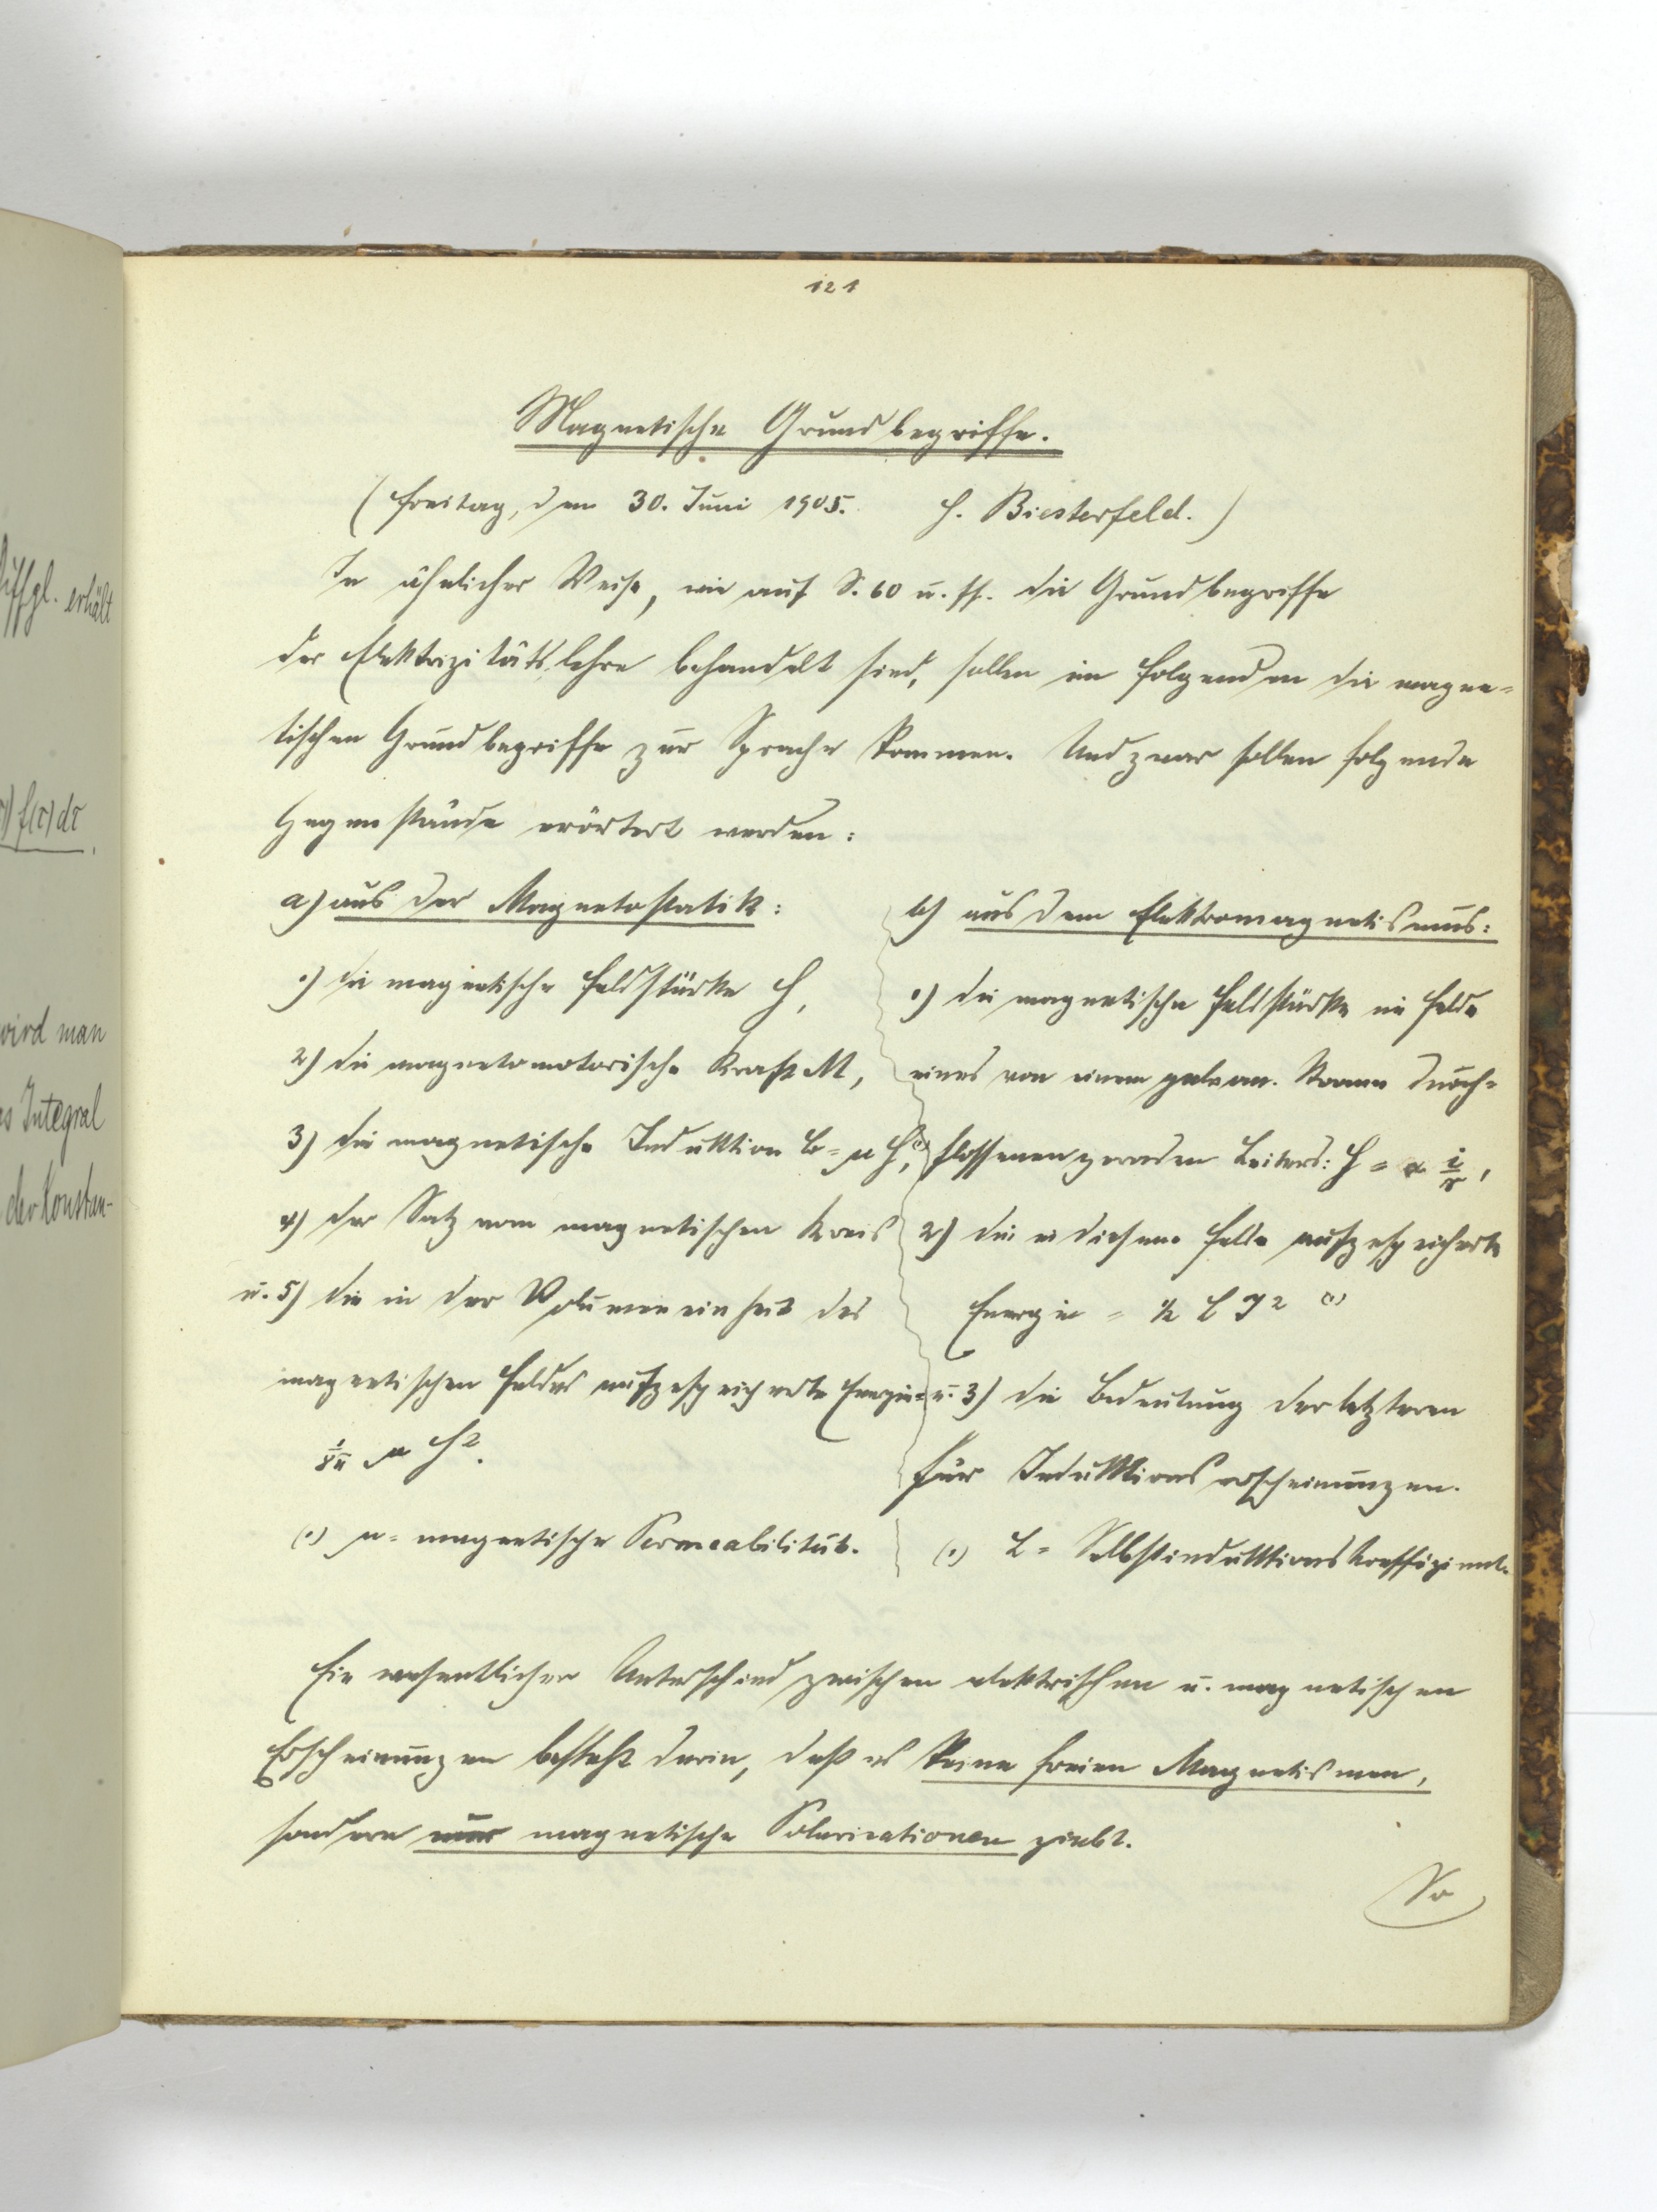 121
Magnetische Grundbegriffe.
(Freitag, den 30. Juni 1905. H. Biesterfeld.)
In ähnlicher Weise, wie auf S. 60 u. ff. die Grundbegriffe
der Elektrizitätslehre behandelt sind, sollen im folgenden die magne-
tischen Grundbegriffe zur Sprache kommen. Und zwar sollen folgende
Gegenstände erörtert werden:
a) aus der Magnetostatik:
1) die magnetische Feldstärke H,
2) die magnetomotorische Kraft M,
3) die magnetische Induktion B = μ H, (1)
4) der Satz vom magnetischen Kreis
u. 5) die in der Volumeneinheit des
magnetischen Feldes aufgespeicherte Energie =
1/8π μ H².
(1) μ = magnetische Permeabilität.
b) aus dem Elektromagnetismus:
1) die magnetische Feldstärke im Felde
eines von einem galvan. Strome durch-
flossenen geraden Leiters: H = α i/r,
2) die in diesem Felde aufgespeicherte
Energie = ½ L J² (1)
u. 3) die Bedeutung der letzteren
für Induktionserscheinungen.
(1) L = Selbstinduktionskoeffizient.
Ein wesentlicher Unterschied zwischen elektrischen u. magnetischen
Erscheinungen besteht darin, daß es keine freien Magnetismen,
sondern nur magnetische Polarisationen giebt.
So
Diffgl. erhält
f(τ)dτ
wird man
das Integral
der Konstan-